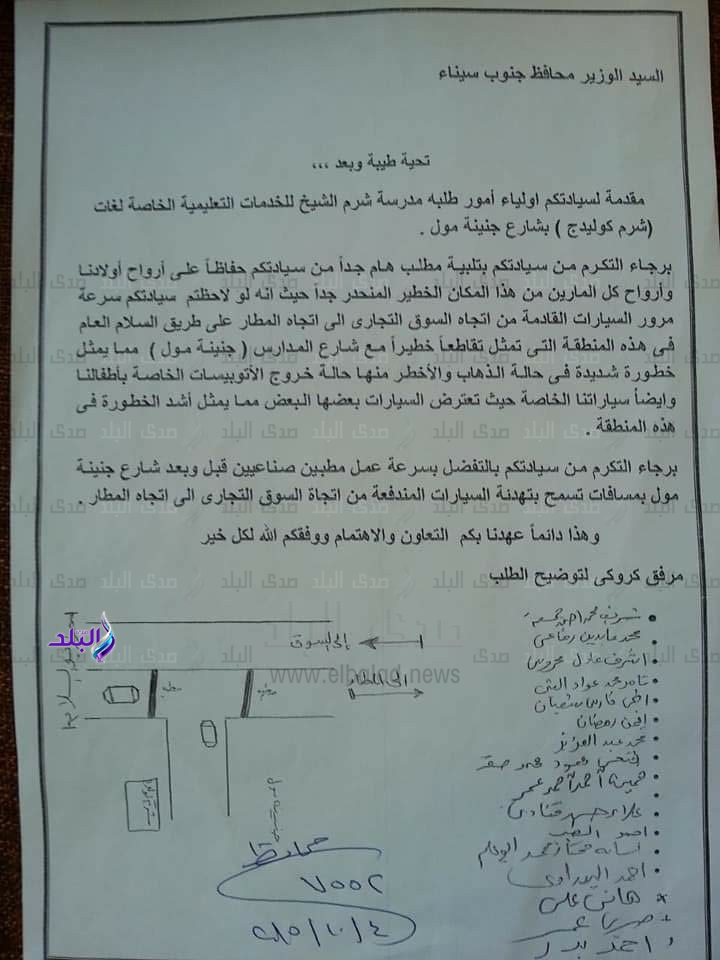 السيد الوزير محافظ جنوب سيناء
تحية طيبة وبعد ,,,
مقدمة لسيادتكم اولياء أمور طلبه مدرسة شرم الشيخ للخدمات التعليمية الخاصة لغات
(شرم كوليدج ) بشارع جنينة مول .
برجاء التكرم من سيادتكم بتلبية مطلب هام جداً من سيادتكم حفاظاً على أرواح أولادنا
وأرواح كل المارين من هذا المكان الخطير المنحدر جداً حيث انه لو لاحظتم سيادتكم سرعة
مرور السيارات القادمة من اتجاه السوق التجارى الى اتجاه المطار على طريق السلام العام
فى هذه المنطقة التى تمثل تقاطعاً خطيراً مع شارع المدارس ( جنينة مول ) مما يمثل
خطورة شديدة فى حالة الذهاب والأخطر منها حالة خروج الأتوبيسات الخاصة بأطفالنا
وايضاً سياراتنا الخاصة حيث تعترض السيارات بعضها البعض مما يمثل أشد الخطورة فى
هذه المنطقة .
برجاء التكرم من سيادتكم بالتفضل بسرعة عمل مطبين صناعيين قبل وبعد شارع جنينة
مول بمسافات تسمح بتهدنة السيارات المندفعة من اتجاة السوق التجارى الى اتجاه المطار .
وهذا دائماً عهدنا بكم التعاون والاهتمام ووفقكم الله لكل خير
مرفق كروكى لتوضيح الطلب
محمد عابدين رفاعى
اشرف عادل محروس
ايمن رمضان
محمد عبد العزيز
احمد
هانى على
احمد بدر
إلى السوق
الى المطار
مطب
٧٥٥٢
٢٠١٥/١٠/٤
صدى البلد
البلد
www.elbalad.news